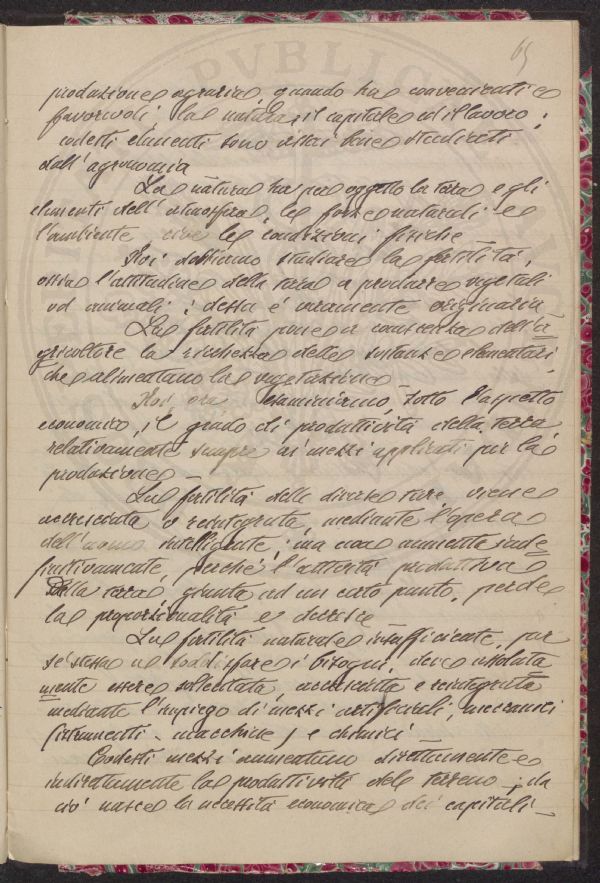 65
produzione agraria, quando ha convenienti e
favorevoli, la natura, il capitale ed il lavoro;
codesti elementi sono assai bene studiati
dall'agronomia
La natura ha per oggetto la terra e gli
elementi dell'atmosfera, le forze naturali e
l'ambiente cioè le condizioni fisiche
Noi dobbiamo studiare la fertilità,
ossia l'attitudine della terra a produrre vegetali
ed animali; dessa é veramente originaria
La fertilità pone a conoscenza dell'a
gricoltore la ricchezza delle sostanze elementari,
che alimentano la vegetazione
Noi, ora, esaminiamo, sotto l'aspetto
economico, il grado di produttività della terra
relativamente sempre ai mezzi applicati per la
produzione —
La fertilità delle diverse terre viene
accresciuta o reintegrata, mediante l'opera
dell'uomo intelligente; ma non aumenta inde
finitivamente, perché l'attività produttiva
della terra, giunta ad un certo punto, perde
la proporzionalità e decresce
La fertilità naturale insufficiente, per
sé stessa a soddisfare i bisogni, deve assoluta
mente essere sollecitata, accresciuta e reintegrata
mediante l'impiego di mezzi artificiali, meccanici
(istrumenti - macchine) e chimici
Codesti mezzi aumentano direttamente e
indirettamente la produttività del terreno; da
ciò nasce la necessità economica dei capitali —